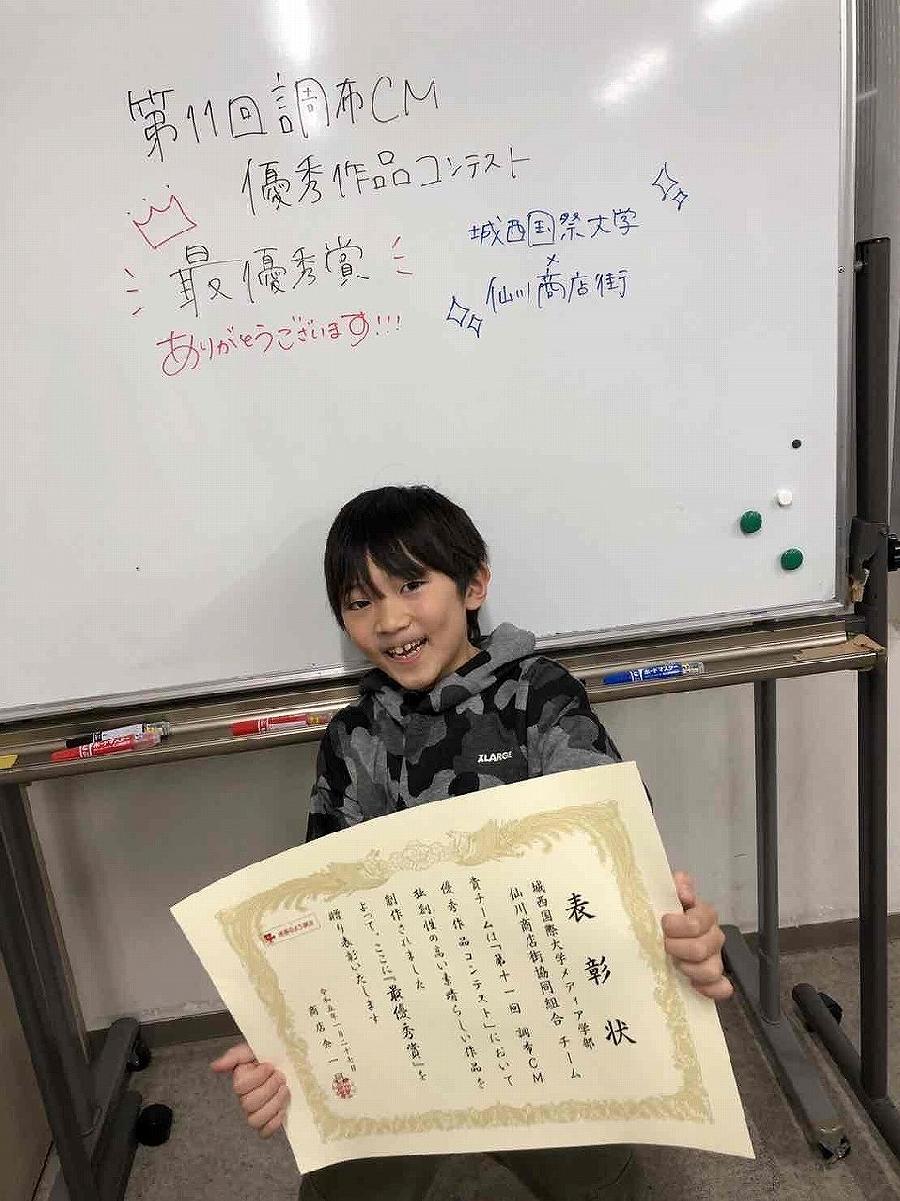 第11回調布CM
優秀作品コンテスト
最優秀賞
ありがとうございます!!!
城西国祭大学
×
仙川商店街
XLARGE
ボードマスター
ボードマスター
表彰状
城西国際大学メディア学部
仙川商店街協同組合 チーム
貴チームは「第十一回 調布CM
優秀作品コンテスト」において
独創性の高い素晴らしい作品を
創作されました
よって、ここに『最優秀賞』を
贈り表彰いたします
商店会一同